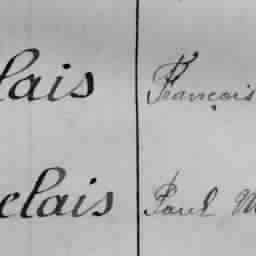 lais François
elais Paul M